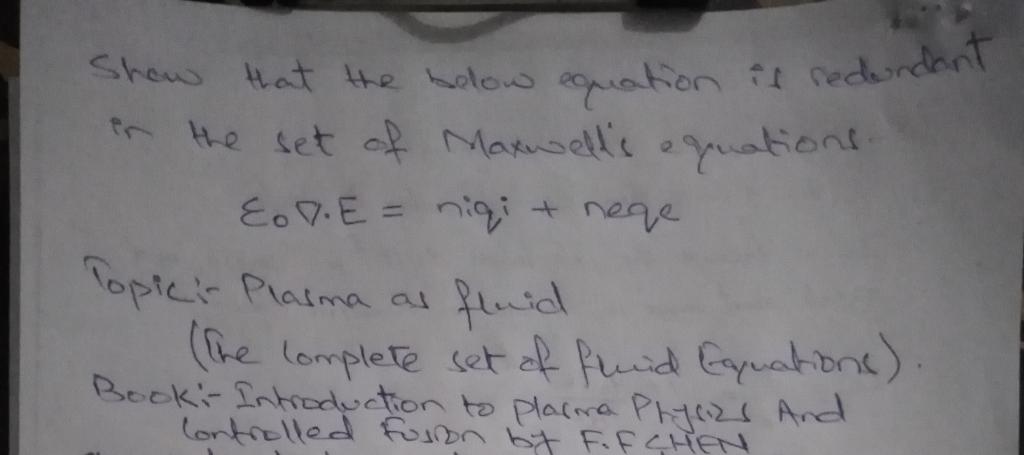 Show that the below equation is redundant
in the set of Maxwell's equations.
ε0∇.E = niqi + neqe
Topic:- Plasma as fluid
(The Complete set of fluid Equations).
Book:- Introduction to plasma Physics And
Controlled Fusion by F.F CHEN